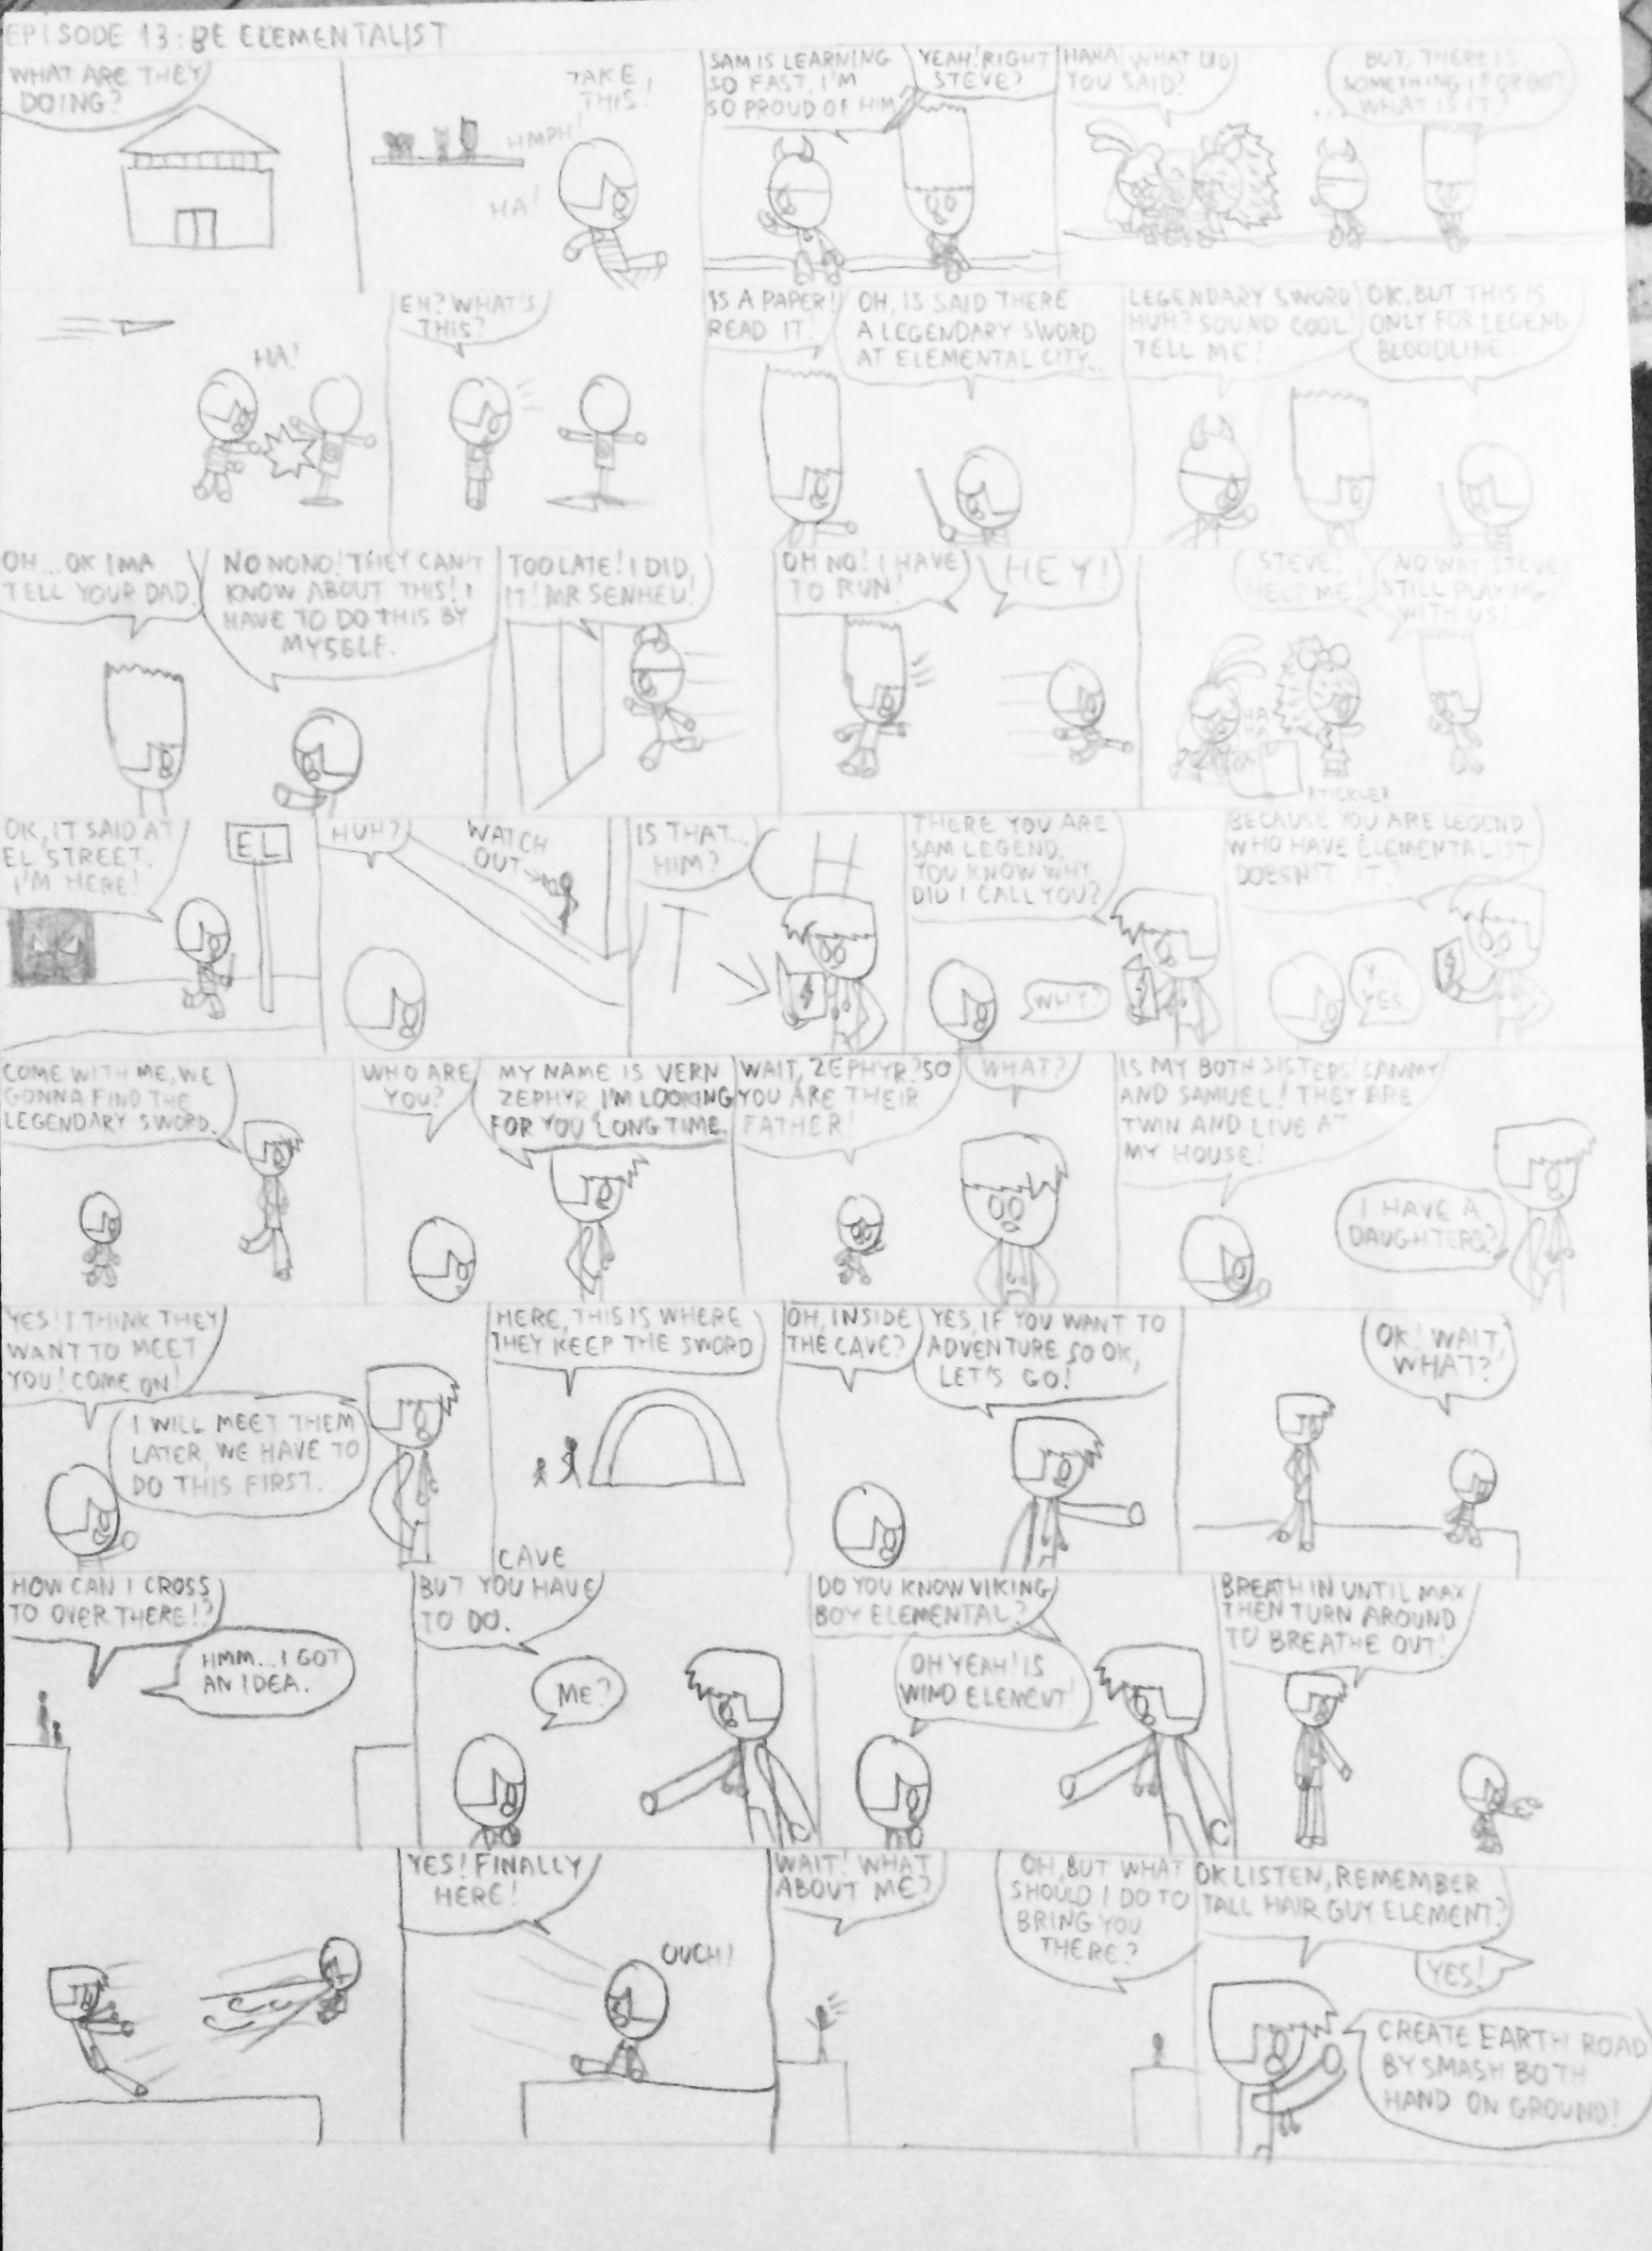 EPISODE 13: BE ELEMENTALIST
WHAT ARE THEY
DOING?
TAKE
THIS!
HMPH!
HA!
SAM IS LEARNING
SO FAST, I'M
SO PROUD OF HIM
YEAH! RIGHT
STEVE?
HAHA WHAT DID
YOU SAID?
BUT, THERE IS
SOMETHING I FORGOT
WHAT IS IT?
...
HA!
EH? WHAT'S
THIS?
IS A PAPER!
READ IT.
OH, IS SAID THERE
A LEGENDARY SWORD
AT ELEMENTAL CITY..
LEGENDARY SWORD
HUH? SOUND COOL!
TELL ME!
OK, BUT THIS IS
ONLY FOR LEGEND
BLOODLINE.
OH... OK IMA
TELL YOUR DAD.
NO NO NO! THEY CAN'T
KNOW ABOUT THIS! I
HAVE TO DO THIS BY
MYSELF.
TOO LATE! I DID
IT! MR SENHEU!
OH NO! I HAVE
TO RUN!
HEY!
STEVE!
HELP ME
NO WAY STEVE
STILL PLAYING
WITH US!
HA
HA
HA
OK, IT SAID AT
EL STREET.
I'M HERE!
EL
HUH?
WATCH
OUT
IS THAT...
HIM?
H
T
THERE YOU ARE
SAM LEGEND.
YOU KNOW WHY
DID I CALL YOU?
WHY?
BECAUSE YOU ARE LEGEND
WHO HAVE ELEMENTALIST
DOESN'T IT?
Y...
YES
COME WITH ME, WE
GONNA FIND THE
LEGENDARY SWORD.
WHO ARE
YOU?
MY NAME IS VERN
ZEPHYR I'M LOOKING
FOR YOU LONG TIME.
WAIT, ZEPHYR? SO
YOU ARE THEIR
FATHER!
WHAT?
IS MY BOTH SISTERS' SAMMY
AND SAMUEL! THEY ARE
TWIN AND LIVE AT
MY HOUSE!
I HAVE A
DAUGHTERS?
YES! I THINK THEY
WANT TO MEET
YOU! COME ON!
I WILL MEET THEM
LATER, WE HAVE TO
DO THIS FIRST.
HERE, THIS IS WHERE
THEY KEEP THE SWORD
CAVE
OH, INSIDE
THE CAVE?
YES, IF YOU WANT TO
ADVENTURE SO OK,
LET'S GO!
OK! WAIT,
WHAT?
HOW CAN I CROSS
TO OVER THERE!?
HMM... I GOT
AN IDEA.
BUT YOU HAVE
TO DO.
ME?
DO YOU KNOW VIKING
BOY ELEMENTAL?
OH YEAH! IS
WIND ELEMENT!
BREATH IN UNTIL MAX
THEN TURN AROUND
TO BREATHE OUT!
YES! FINALLY
HERE!
OUCH!
WAIT! WHAT
ABOUT ME?
OH, BUT WHAT
SHOULD I DO TO
BRING YOU
THERE?
OK LISTEN, REMEMBER
TALL HAIR GUY ELEMENT?
YES!
CREATE EARTH ROAD
BY SMASH BOTH
HAND ON GROUND!